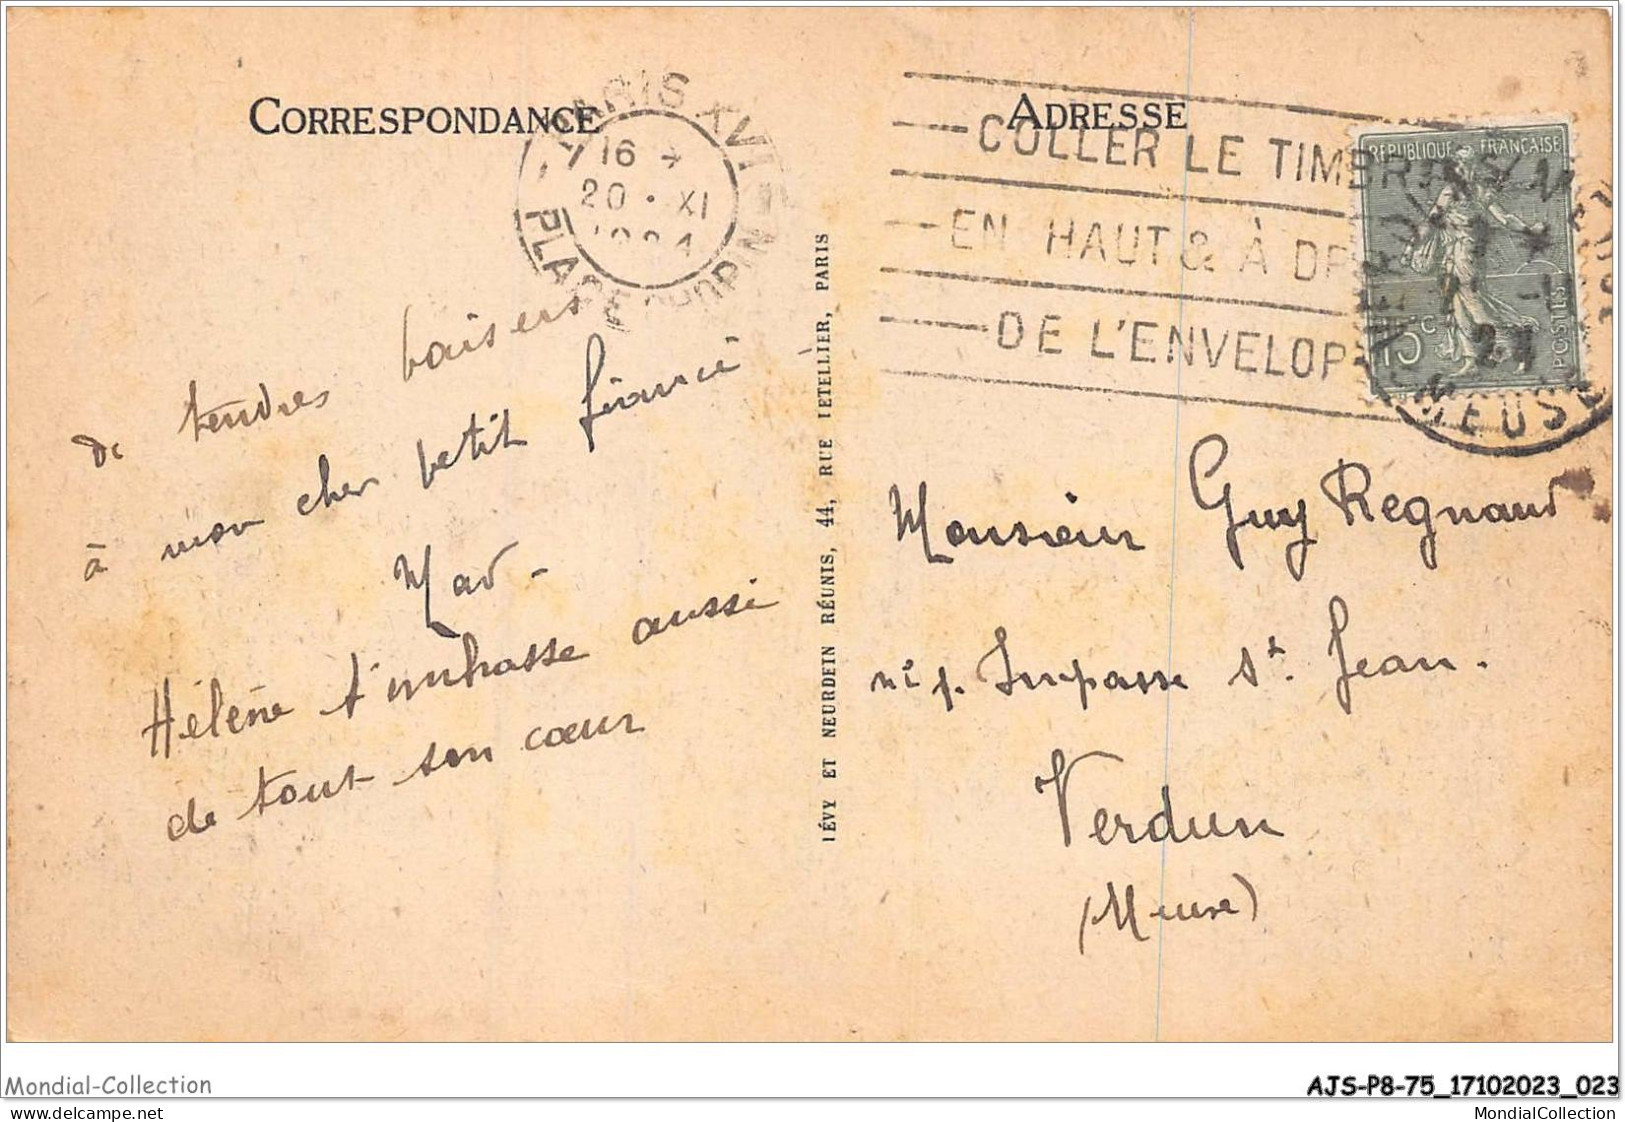 CORRESPONDANCE
PARIS XVI
16
20 · XI
PLACE CHOPIN
de tendres baisers
à mon cher petit fiancé
Mad -
Hélène t'embrasse aussi
de tout son cœur
LÉVY ET NEURDEIN RÉUNIS, 44, RUE LETELLIER, PARIS
ADRESSE
COLLER LE TIMBRE
EN HAUT & À DR
DE L'ENVELOP
RÉPUBLIQUE FRANÇAISE
15c
POSTES
MEUSE
Monsieur Guy Regnaud
Impasse St. Jean.
Verdun
(Meuse)
Mondial-Collection
AJS-P8-75_17102023_023
mondial_collection.delcampe.net
MondialCollection